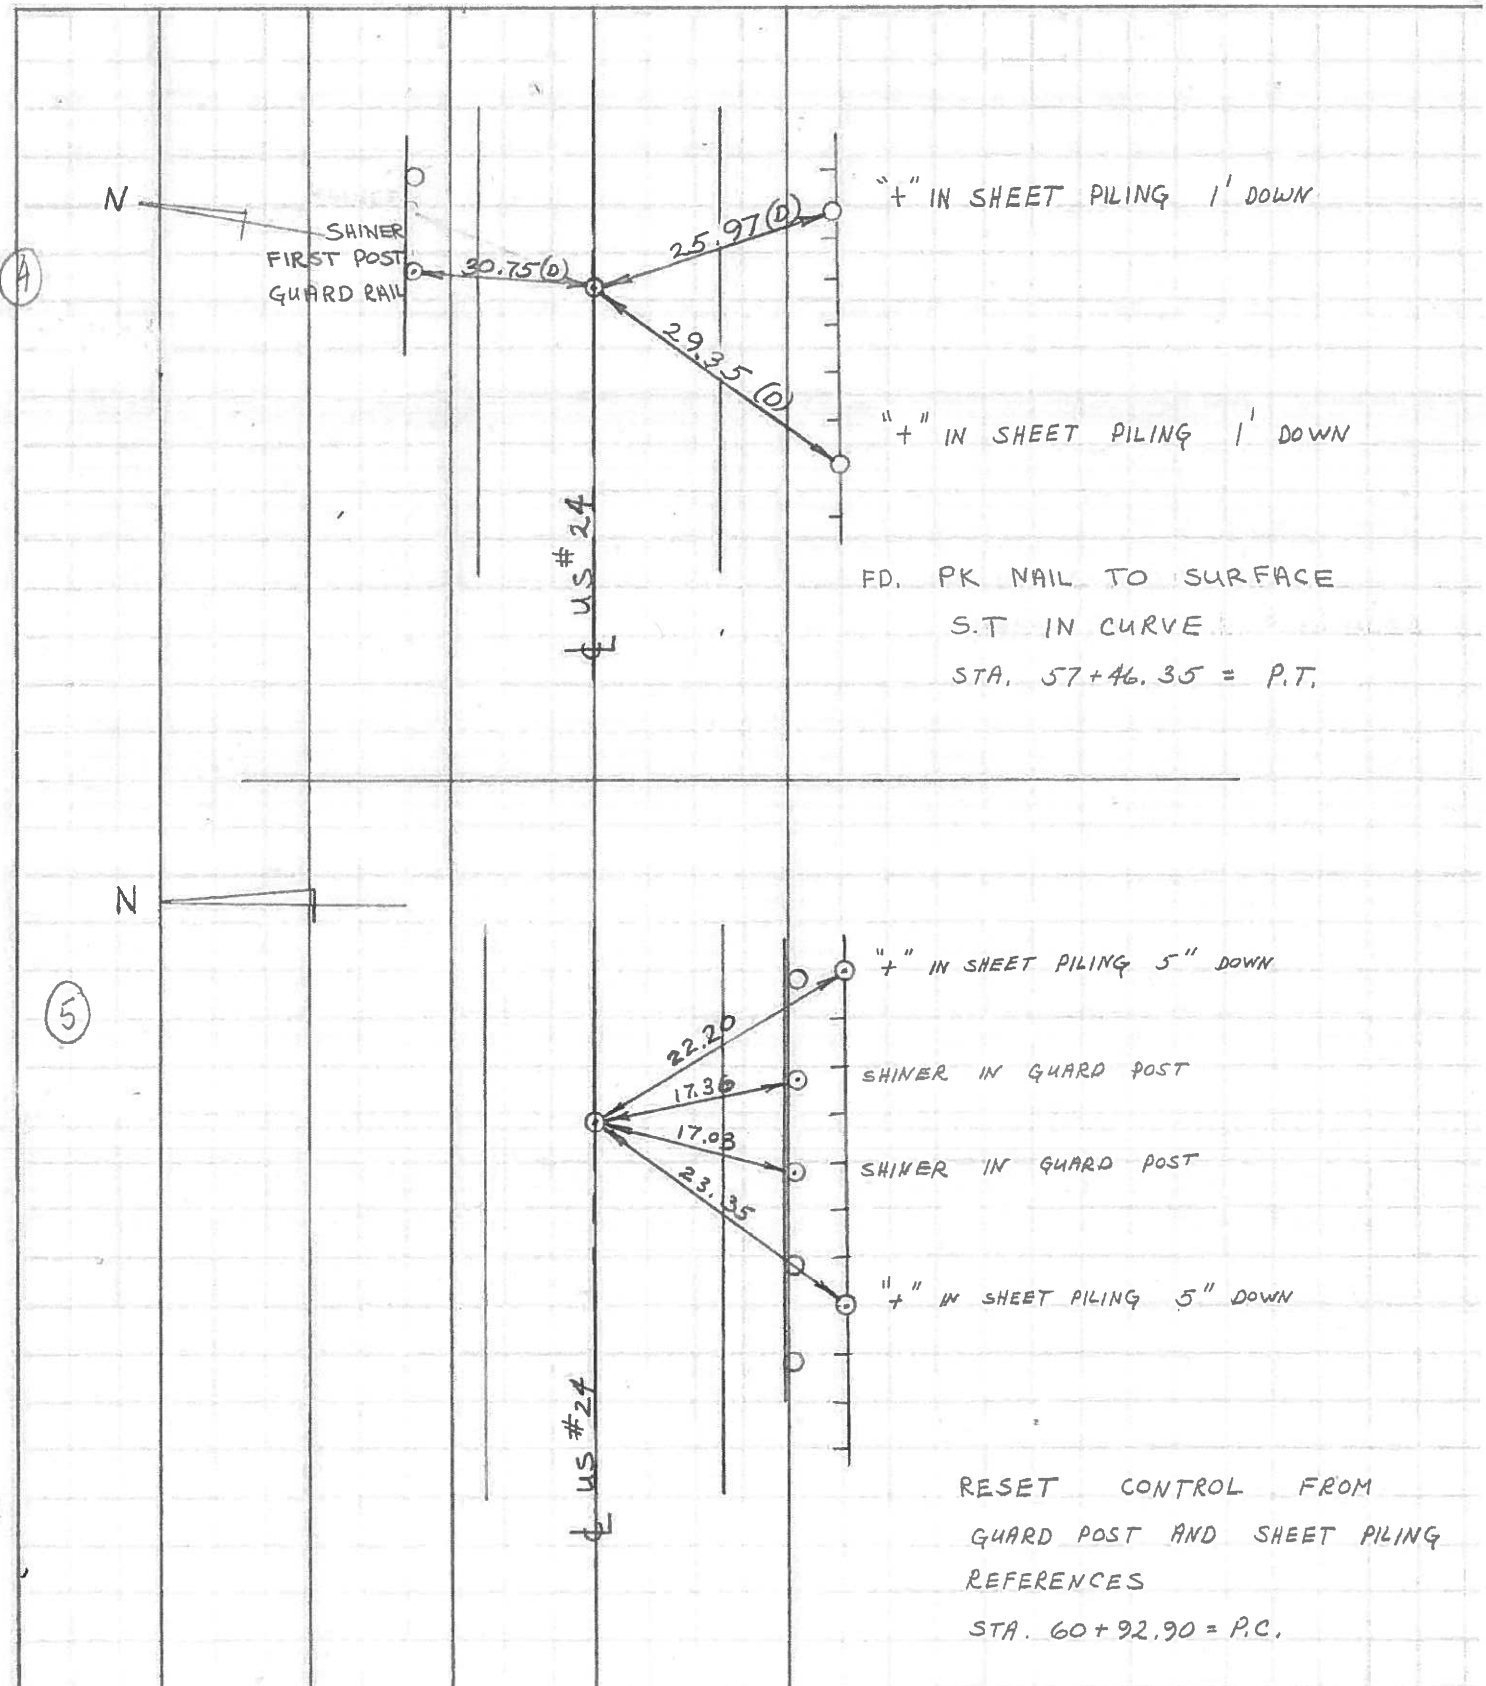 N
SHINER
FIRST POST
GUARD RAIL
4
30.75(D)
25.97(D)
29.35 (D)
"+" IN SHEET PILING 1' DOWN
"+" IN SHEET PILING 1' DOWN
℄ US #24
FD. PK NAIL TO SURFACE
S.T IN CURVE
STA. 57+46.35 = P.T.
N
5
22.20
17.36
17.03
23.35
"+" IN SHEET PILING 5" DOWN
SHINER IN GUARD POST
SHINER IN GUARD POST
"+" IN SHEET PILING 5" DOWN
℄ US #24
RESET CONTROL FROM
GUARD POST AND SHEET PILING
REFERENCES
STA. 60+92.90 = P.C.